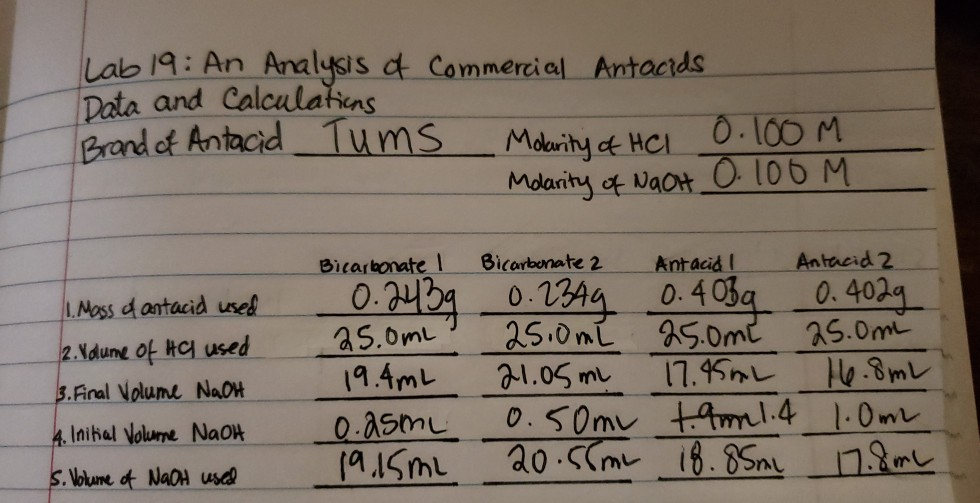 Lab 19: An Analysis of Commercial Antacids
Data and Calculations
Brand of Antacid Tums Molarity of HCl 0.100 M
Molarity of NaOH 0.100 M
Bicarbonate 1 Bicarbonate 2 Antacid 1 Antacid 2
1. Mass of antacid used 0.243g 0.234g 0.403g 0.402g
2. Volume of HCl used 25.0mL 25.0mL 25.0mL 25.0mL
3. Final Volume NaOH 19.4mL 21.05mL 17.45mL 16.8mL
4. Initial Volume NaOH 0.25mL 0.50mL 1.4 1.0mL
5. Volume of NaOH used 19.15mL 20.55mL 18.85mL 17.8mL